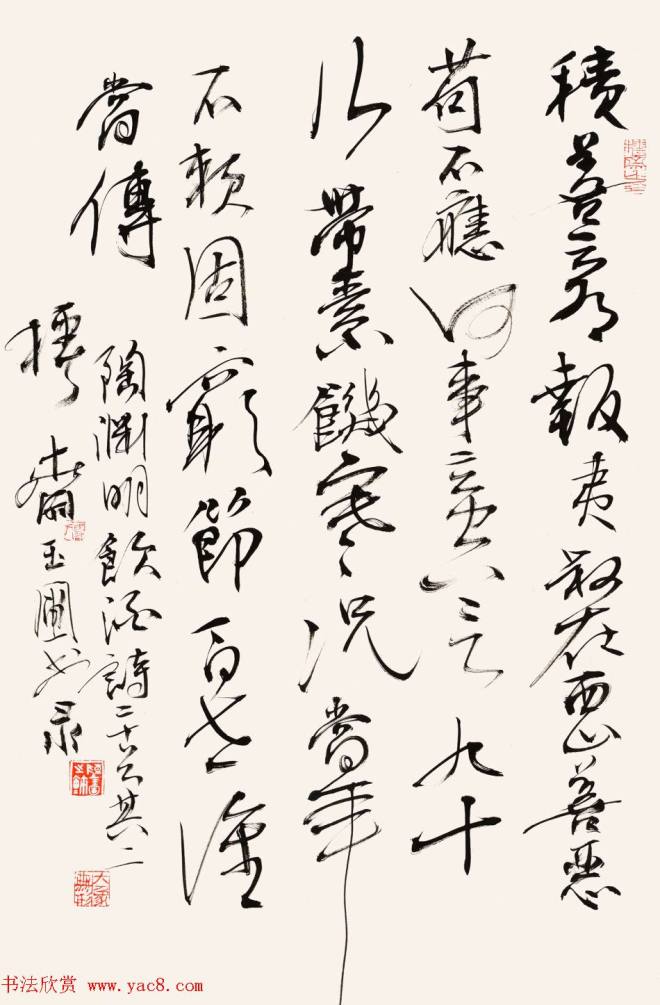 積善云有報夷叔在西山善惡
苟不應何事空立言九十
行帶素饑寒況當年
不賴固窮節百世誰
當傳
陶淵明飲酒詩二十首其二
齋玉圃書录
书法欣赏 www.yac8.com